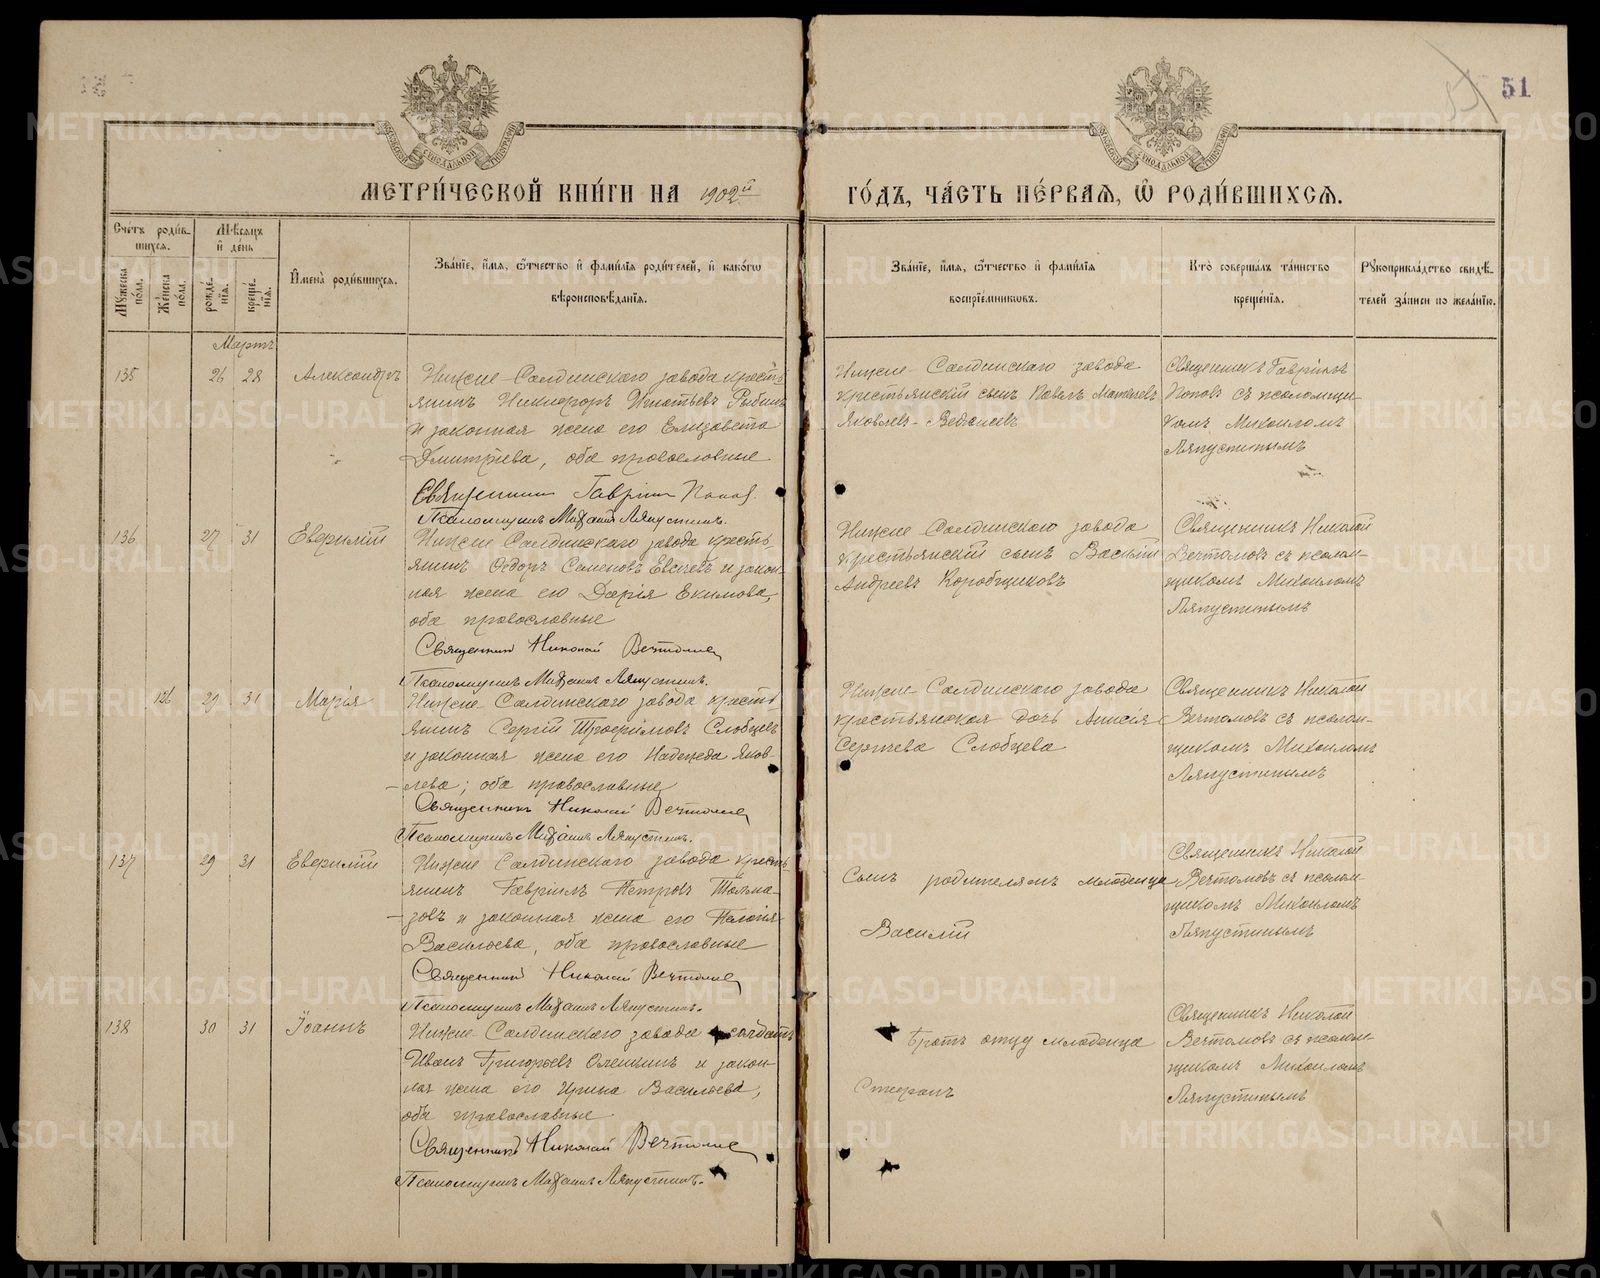 51
МОСКОВСКОЙ СѴНОДАЛЬНОЙ ТИПОГРАФІИ
МОСКОВСКОЙ СѴНОДАЛЬНОЙ ТИПОГРАФІИ
МЕТРИ́ЧЕСКОЙ КНИ́ГИ НА 1902й
ГО́ДЪ, ЧА́СТЬ ПЕ́РВАѦ, Ѡ҃ РОДИ́ВШИХСѦ.
Счетъ роди́в-
шихся.
Мѣ́сяцъ
и де́нь
Му́жеска по́ла.
Же́нска по́ла.
рожде́-
нія.
креще́-
нія.
И҆мена̀ роди́вшихся.
Зва́ніе, и҆́мя, ѻ҆́тчество и҆ фами́лія роди́телей, и҆ како́гѡ
вѣроисповѣ́данія.
Зва́ніе, и҆́мя, ѻ҆́тчество и҆ фами́лія
воспріе́мниковъ.
Кто̀ соверша́лъ та́инство
креще́нія.
Рꙋкоприкла́дство свидѣ́-
телей за́писи по жела́нію.
Мартъ
135 26 28 Александръ
Нижне-Салдинскаго завода кресть-
янинъ Никифоръ Игнатьевъ Рыбинъ
и законная жена его Елизавета
Дмитріева, оба православные
Священникъ Гавріилъ Поповъ.
Псаломщикъ Михаилъ Ляпустинъ.
Нижне-Салдинскаго завода
крестьянскій сынъ Павелъ
Яковлевъ-
Священникъ Гавріилъ
Поповъ съ псаломщи-
комъ Михаиломъ
Ляпустинымъ
136 27 31 Еверилій
Нижне-Салдинскаго завода кресть-
янинъ Ѳедоръ Семеновъ Евсѣевъ и закон-
ная жена его Дарія Екимова,
оба православные
Священникъ Николай Вечтомовъ
Псаломщикъ Михаилъ Ляпустинъ.
Нижне-Салдинскаго завода
крестьянскій сынъ Василій
Андреевъ Коробщиковъ
Священникъ Николай
Вечтомовъ съ псалом-
щикомъ Михаиломъ
Ляпустинымъ
126 29 31 Марія
Нижне-Салдинскаго завода кресть-
янинъ Сергій Трофимовъ Слобцевъ
и законная жена его Надежда Яков-
лева; оба православные
Священникъ Николай Вечтомовъ
Псаломщикъ Михаилъ Ляпустинъ.
Нижне-Салдинскаго завода
крестьянская дочь Анисія
Сергѣева Слобцева
Священникъ Николай
Вечтомовъ съ псалом-
щикомъ Михаиломъ
Ляпустинымъ
137 29 31 Еверилій
Нижне-Салдинскаго завода кресть-
янинъ Гавріилъ Петровъ Толма-
човъ и законная жена его Пелагія
Васильева, оба православные
Священникъ Николай Вечтомовъ
Псаломщикъ Михаилъ Ляпустинъ.
Сынъ родителямъ младенца
Василій
Священникъ Николай
Вечтомовъ съ псалом-
щикомъ Михаиломъ
Ляпустинымъ
138 30 31 Іоаннъ
Нижне-Салдинскаго завода солдатъ
Иванъ Григорьевъ Оленкинъ и закон-
ная жена его Ирина Васильева,
оба православные
Священникъ Николай Вечтомовъ
Псаломщикъ Михаилъ Ляпустинъ.
Братъ отцу младенца
Стефанъ
Священникъ Николай
Вечтомовъ съ псалом-
щикомъ Михаиломъ
Ляпустинымъ
METRIKI.GASO-URAL.RU